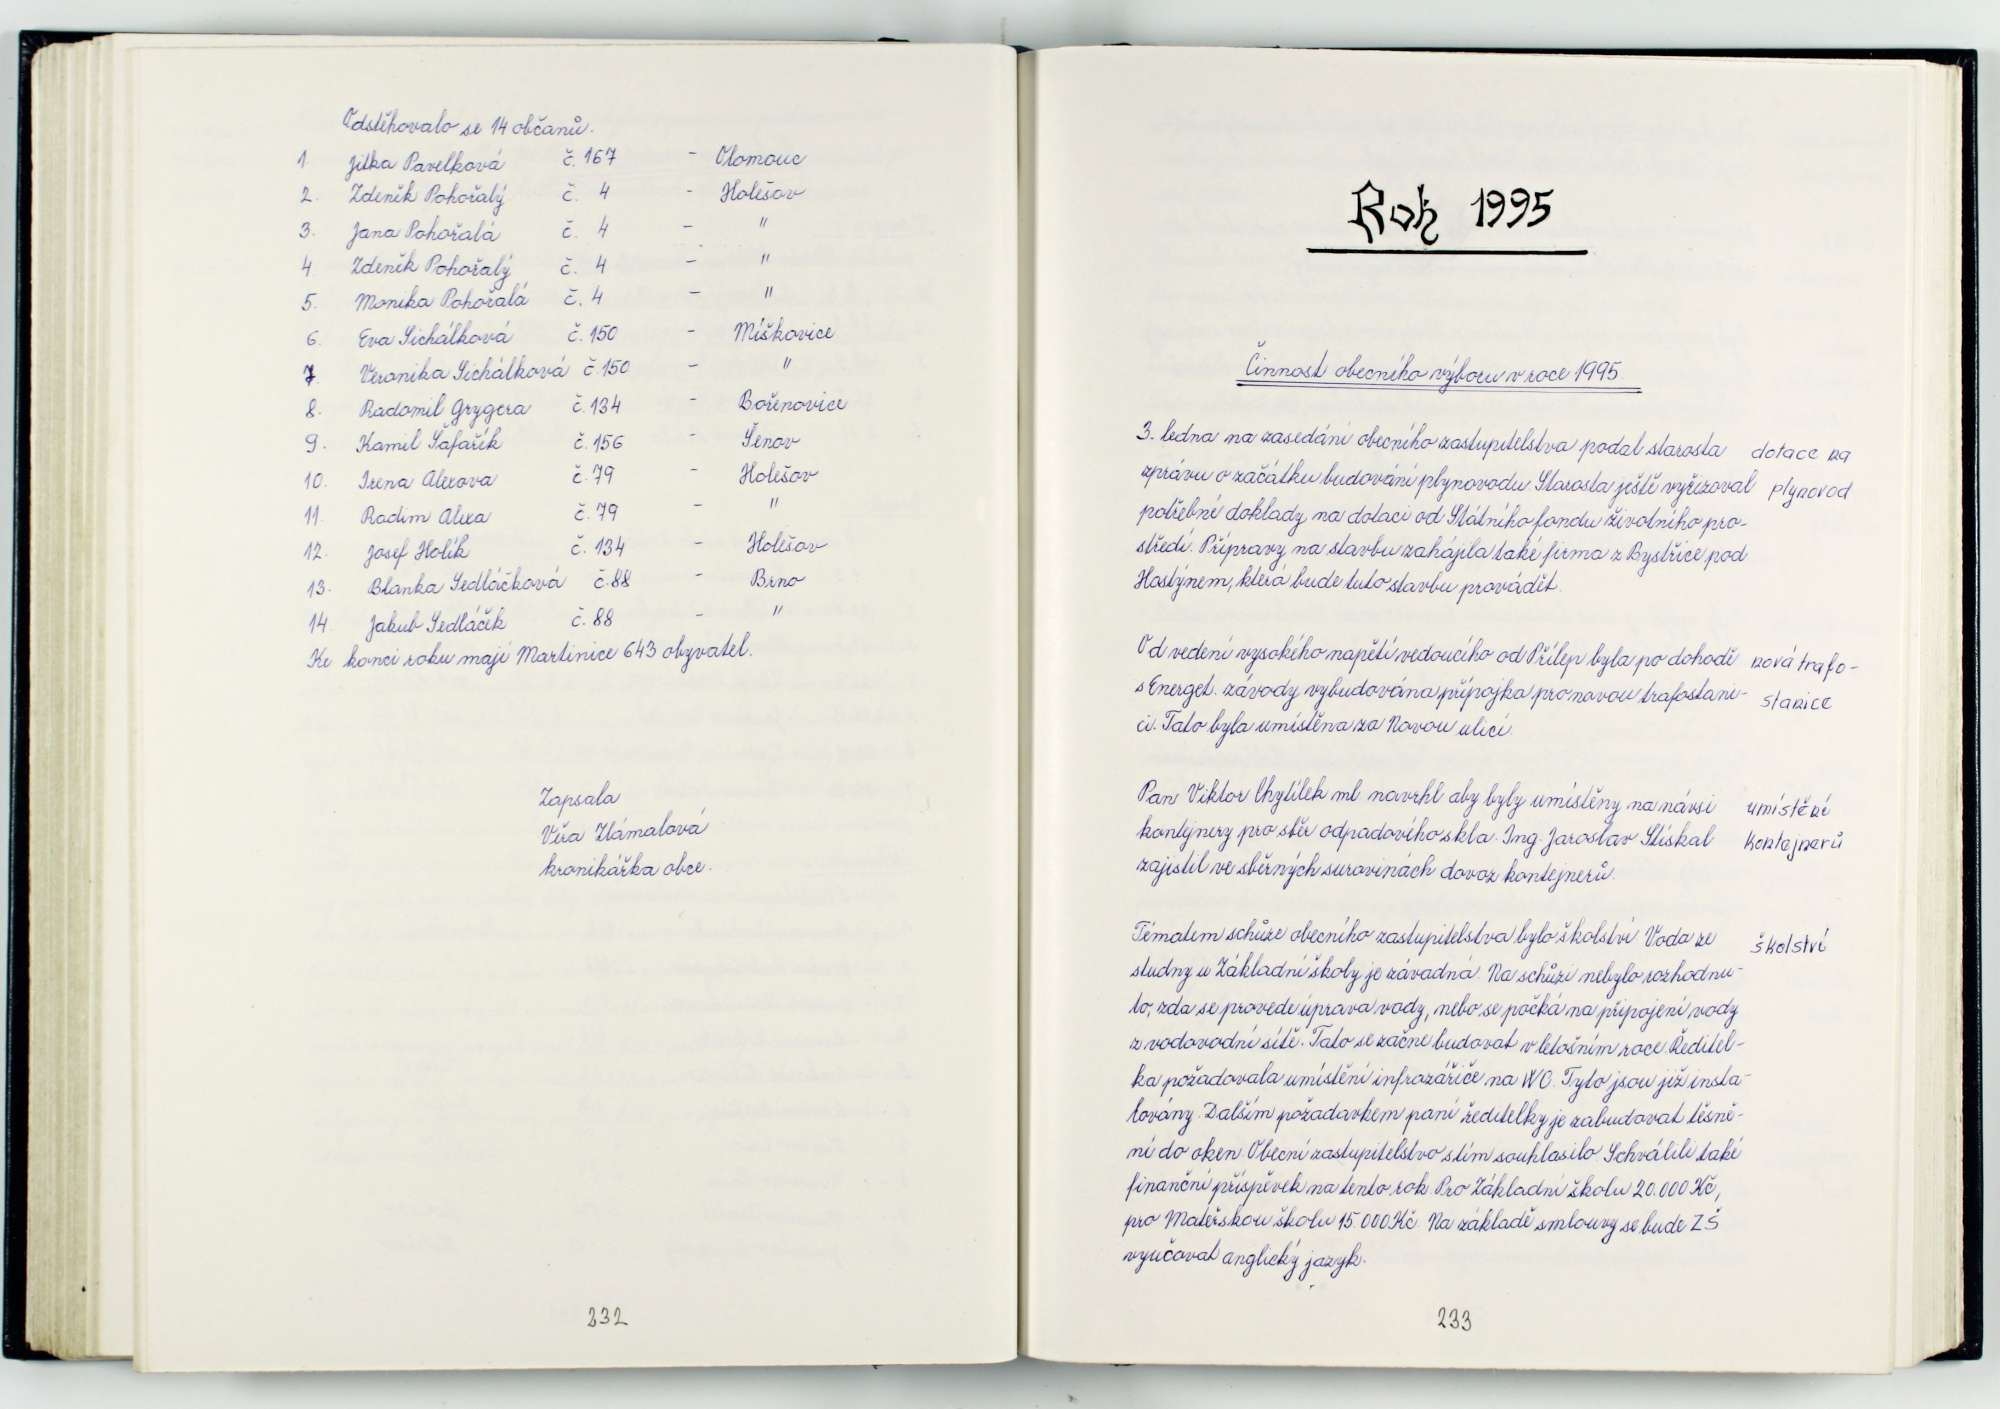 Odstěhovalo se 14 občanů.
1. Jitka Pavelková č. 167 - Olomouc
2. Zdeněk Pohořalý č. 4 - Holešov
3. Jana Pohořalá č. 4 - "
4 Zdeněk Pohořalý č. 4 - "
5. Monika Pohořalá č. 4 - "
6. Eva Sichálková č. 150 - Míškovice
7. Veronika Sichálková č. 150 - "
8. Radomil Grygera č. 134 - Bořenovice
9. Kamil Šafařík č. 156 - Šenov
10. Irena Alexova č. 79 - Holešov
11. Radim Alexa č. 79 - "
12. Josef Holík č. 134 - Holešov
13. Blanka Sedláčková č. 88 - Brno
14. Jakub Sedláček č. 88 - "
Ke konci roku mají Martinice 643 obyvatel.
Zapsala
Věra Zlámalová
kronikářka obce.
232
Rok 1995
Činnost obecního výboru v roce 1995
3. ledna na zasedání obecního zastupitelstva podal starosta dotace na
zprávu o začátku budování plynovodu Starosta ještě vyřizoval plynovod
potřebné doklady na dotaci od Státního fondu životního pro-
středí. Přípravy na stavbu zahájila také firma z Bystřice pod
Hostýnem, která bude tuto stavbu provádět.
Od vedení vysokého napětí vedoucího od Přílep byla po dohodě nová trafo-
s Energet. závody vybudována přípojka pro novou trafostani- stanice
ci. Tato byla umístěna za Novou ulicí.
Pan Viktor Chytílek ml navrhl aby byly umístěny na návsi umístění
kontejnery pro sběr odpadového skla. Ing. Jaroslav Stískal kontejnerů
zajistil ve sběrných surovinách dovoz kontejnerů.
Tématem schůze obecního zastupitelstva bylo školství Voda ze školství
studny u Základní školy je závadná. Na schůzi nebylo rozhodnu-
to, zda se provede úprava vody, nebo se počká na připojení vody
z vodovodní sítě. Tato se začne budovat v letošním roce. Ředitel-
ka požadovala umístění infrazářiče na WC. Tyto jsou již insta-
lovány. Dalším požadavkem paní ředitelky je zabudovat těsně-
ní do oken Obecní zastupitelstvo stím souhlasilo Schválili také
finanční příspěvek na tento rok Pro Základní školu 20.000 Kč,
pro Mateřskou školu 15.000 Kč. Na základě smlouvy se bude ZŠ
vyučovat anglický jazyk.
233